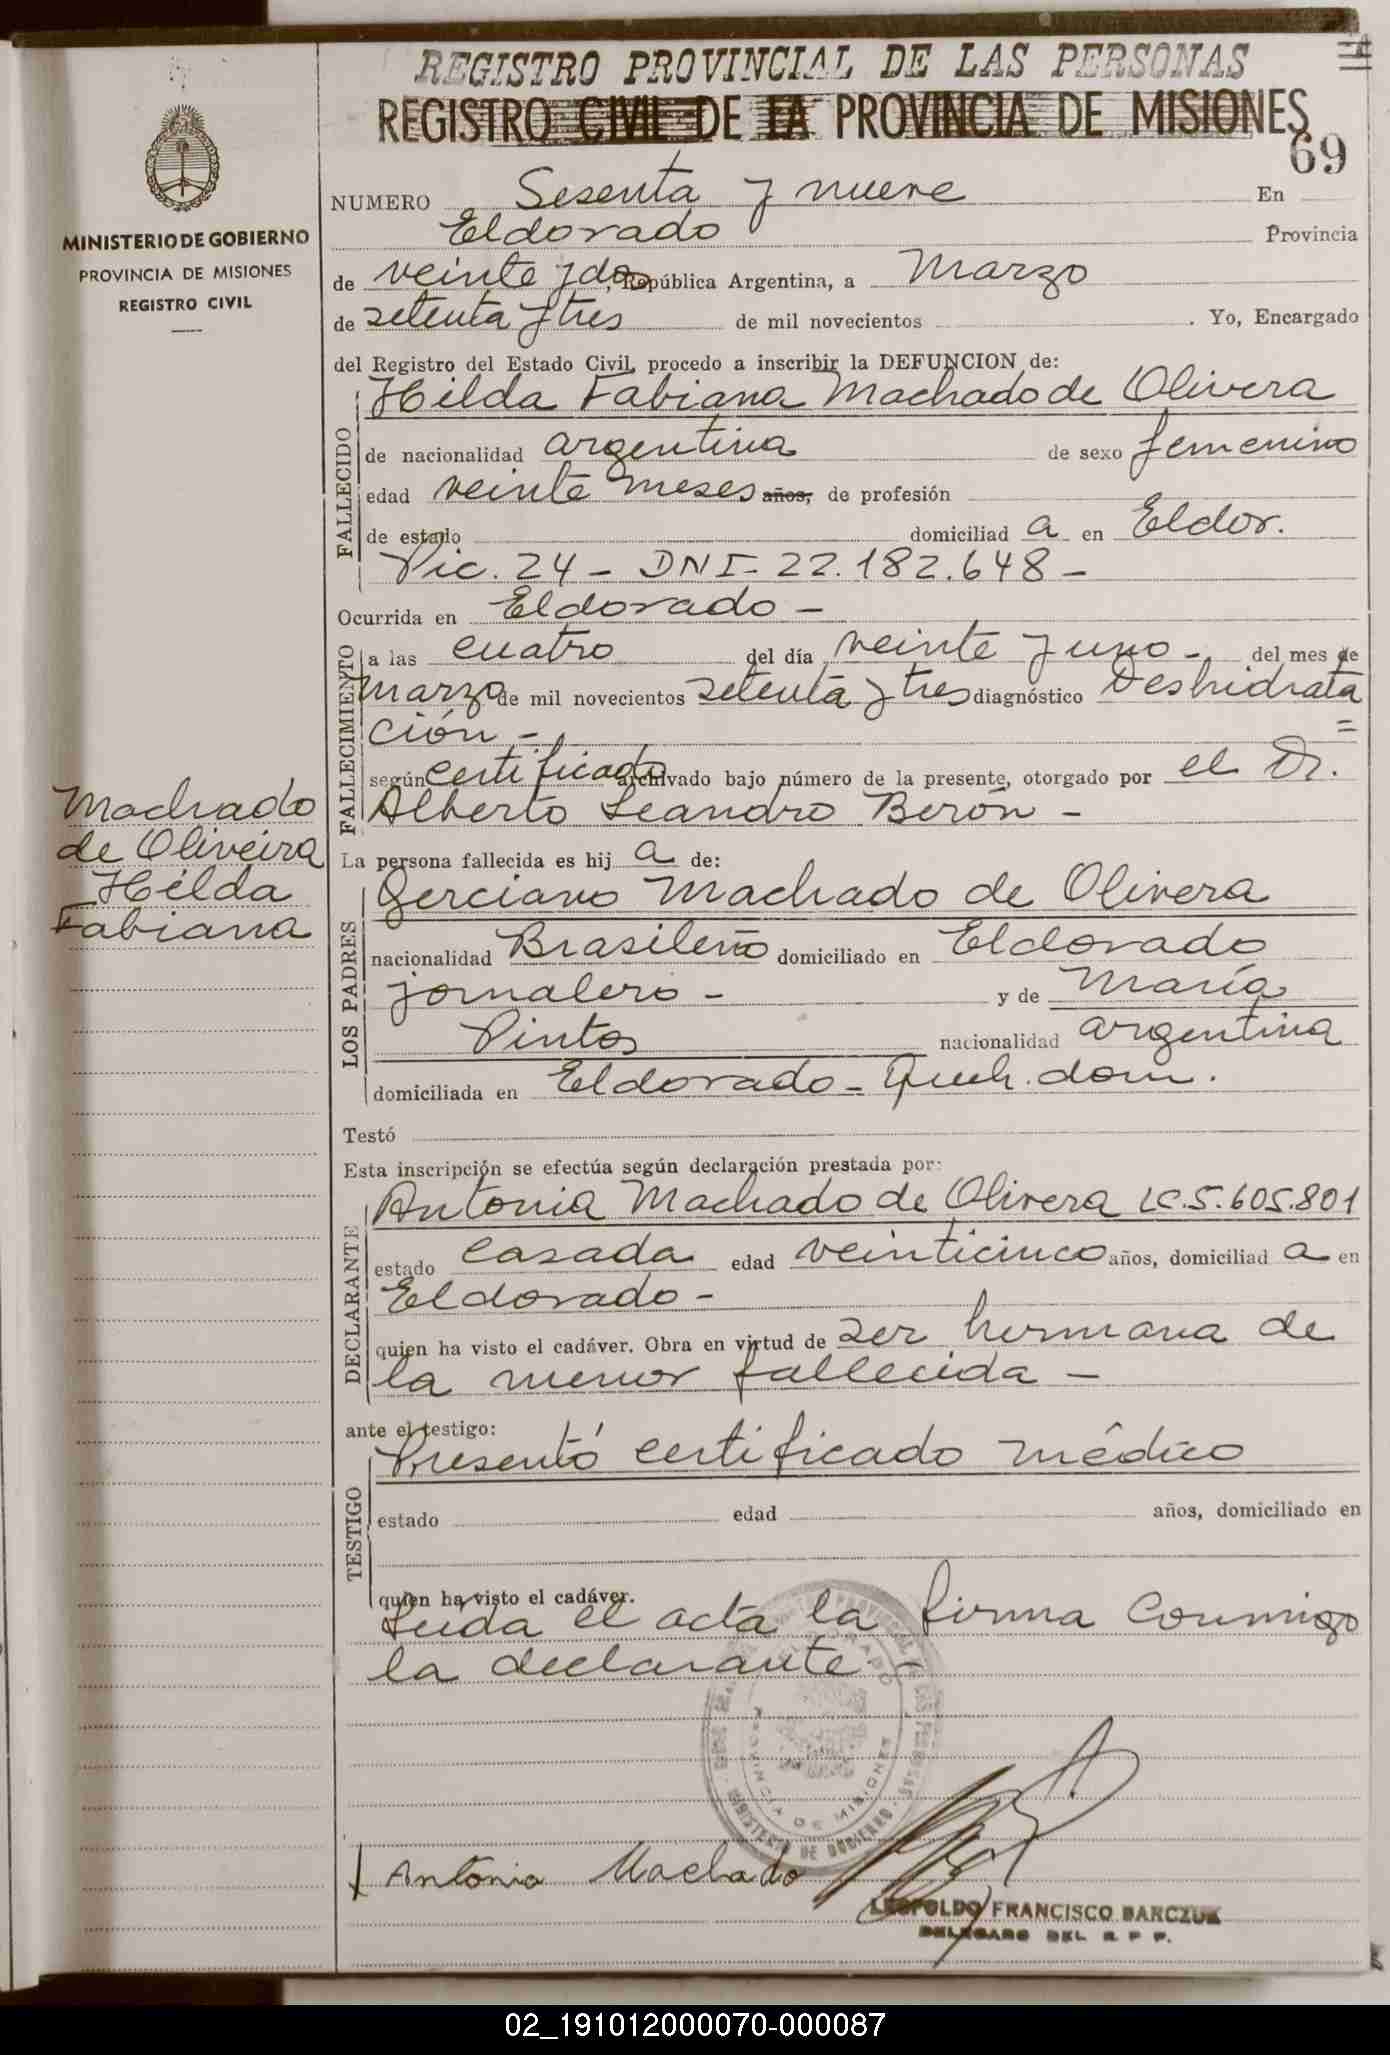 REGISTRO PROVINCIAL DE LAS PERSONAS
REGISTRO CIVIL DE LA PROVINCIA DE MISIONES
69
MINISTERIO DE GOBIERNO
PROVINCIA DE MISIONES
REGISTRO CIVIL
NUMERO Sesenta y nueve En
Eldorado Provincia
de veinte y dos, República Argentina, a Marzo
de setenta y tres de mil novecientos . Yo, Encargado
del Registro del Estado Civil, procedo a inscribir la DEFUNCION de:
FALLECIDO
Hilda Fabiana Machado de Olivera
de nacionalidad argentina de sexo femenino
edad veinte meses años, de profesión
de estado domiciliad a en Eldor.
Pic. 24 - DNI - 22.182.648 -
Ocurrida en Eldorado -
FALLECIMIENTO
a las cuatro del día veinte y uno - del mes de
marzo de mil novecientos setenta y tres diagnóstico Deshidrata
ción - =
según certificado archivado bajo número de la presente, otorgado por el Dr.
Alberto Leandro Berón -
Machado
de Oliveira
Hilda
Fabiana
La persona fallecida es hij a de:
LOS PADRES
Gerciano Machado de Olivera
nacionalidad Brasileño domiciliado en Eldorado
jornalero - y de María
Pintos nacionalidad argentina
domiciliada en Eldorado - Queh. dom.
Testó
Esta inscripción se efectúa según declaración prestada por:
DECLARANTE
Antonia Machado de Olivera LC.5.605.801
estado casada edad veinticinco años, domiciliad a en
Eldorado -
quien ha visto el cadáver. Obra en virtud de ser hermana de
la menor fallecida -
ante el testigo:
TESTIGO
Presentó certificado médico
estado edad años, domiciliado en
quien ha visto el cadáver.
Leída el acta la firma conmigo
la declarante -
PROVINCIA DE MISIONES
MINISTERIO DE GOBIERNO
Antonia Machado
LEOPOLDO FRANCISCO BARCZUK
DELEGADO DEL R P P.
02_191012000070-000087